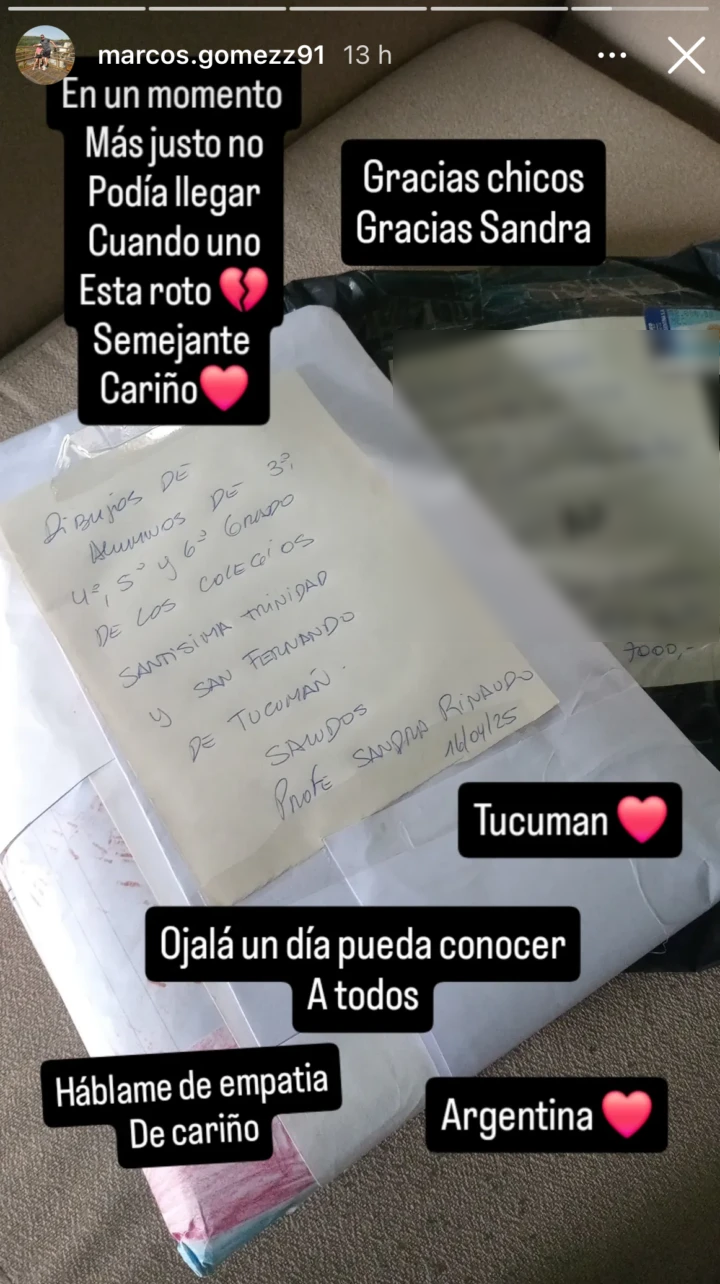 marcos.gomezz91 13 h
En un momento
Más justo no
Podía llegar
Cuando uno
Esta roto 💔
Semejante
Cariño❤️
Gracias chicos
Gracias Sandra
DIBUJOS DE
ALUMNOS DE 3º,
4º, 5º y 6º GRADO
DE LOS COLEGIOS
SANTISIMA TRINIDAD
y SAN FERNANDO
DE TUCUMÁN.
SALUDOS
Profe SANDRA RINAUDO
16/04/25
7000,-
Tucuman ❤️
Ojalá un día pueda conocer
A todos
Háblame de empatia
De cariño
Argentina ❤️